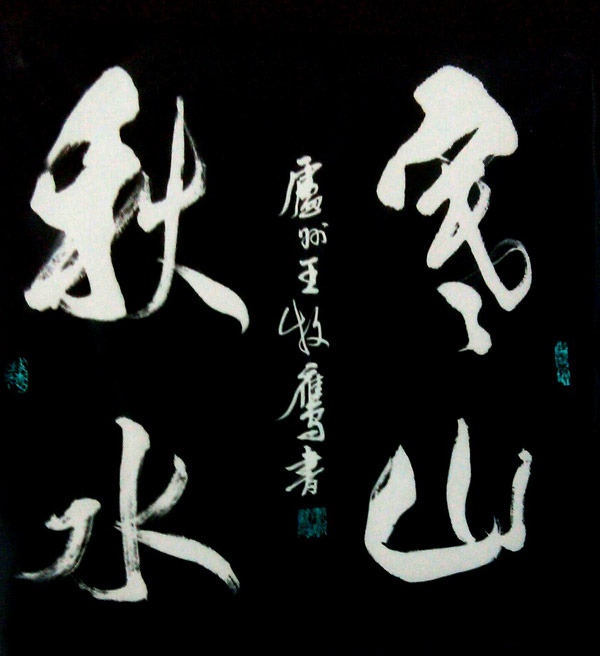 寒山
盧州王牧鹰書
秋水